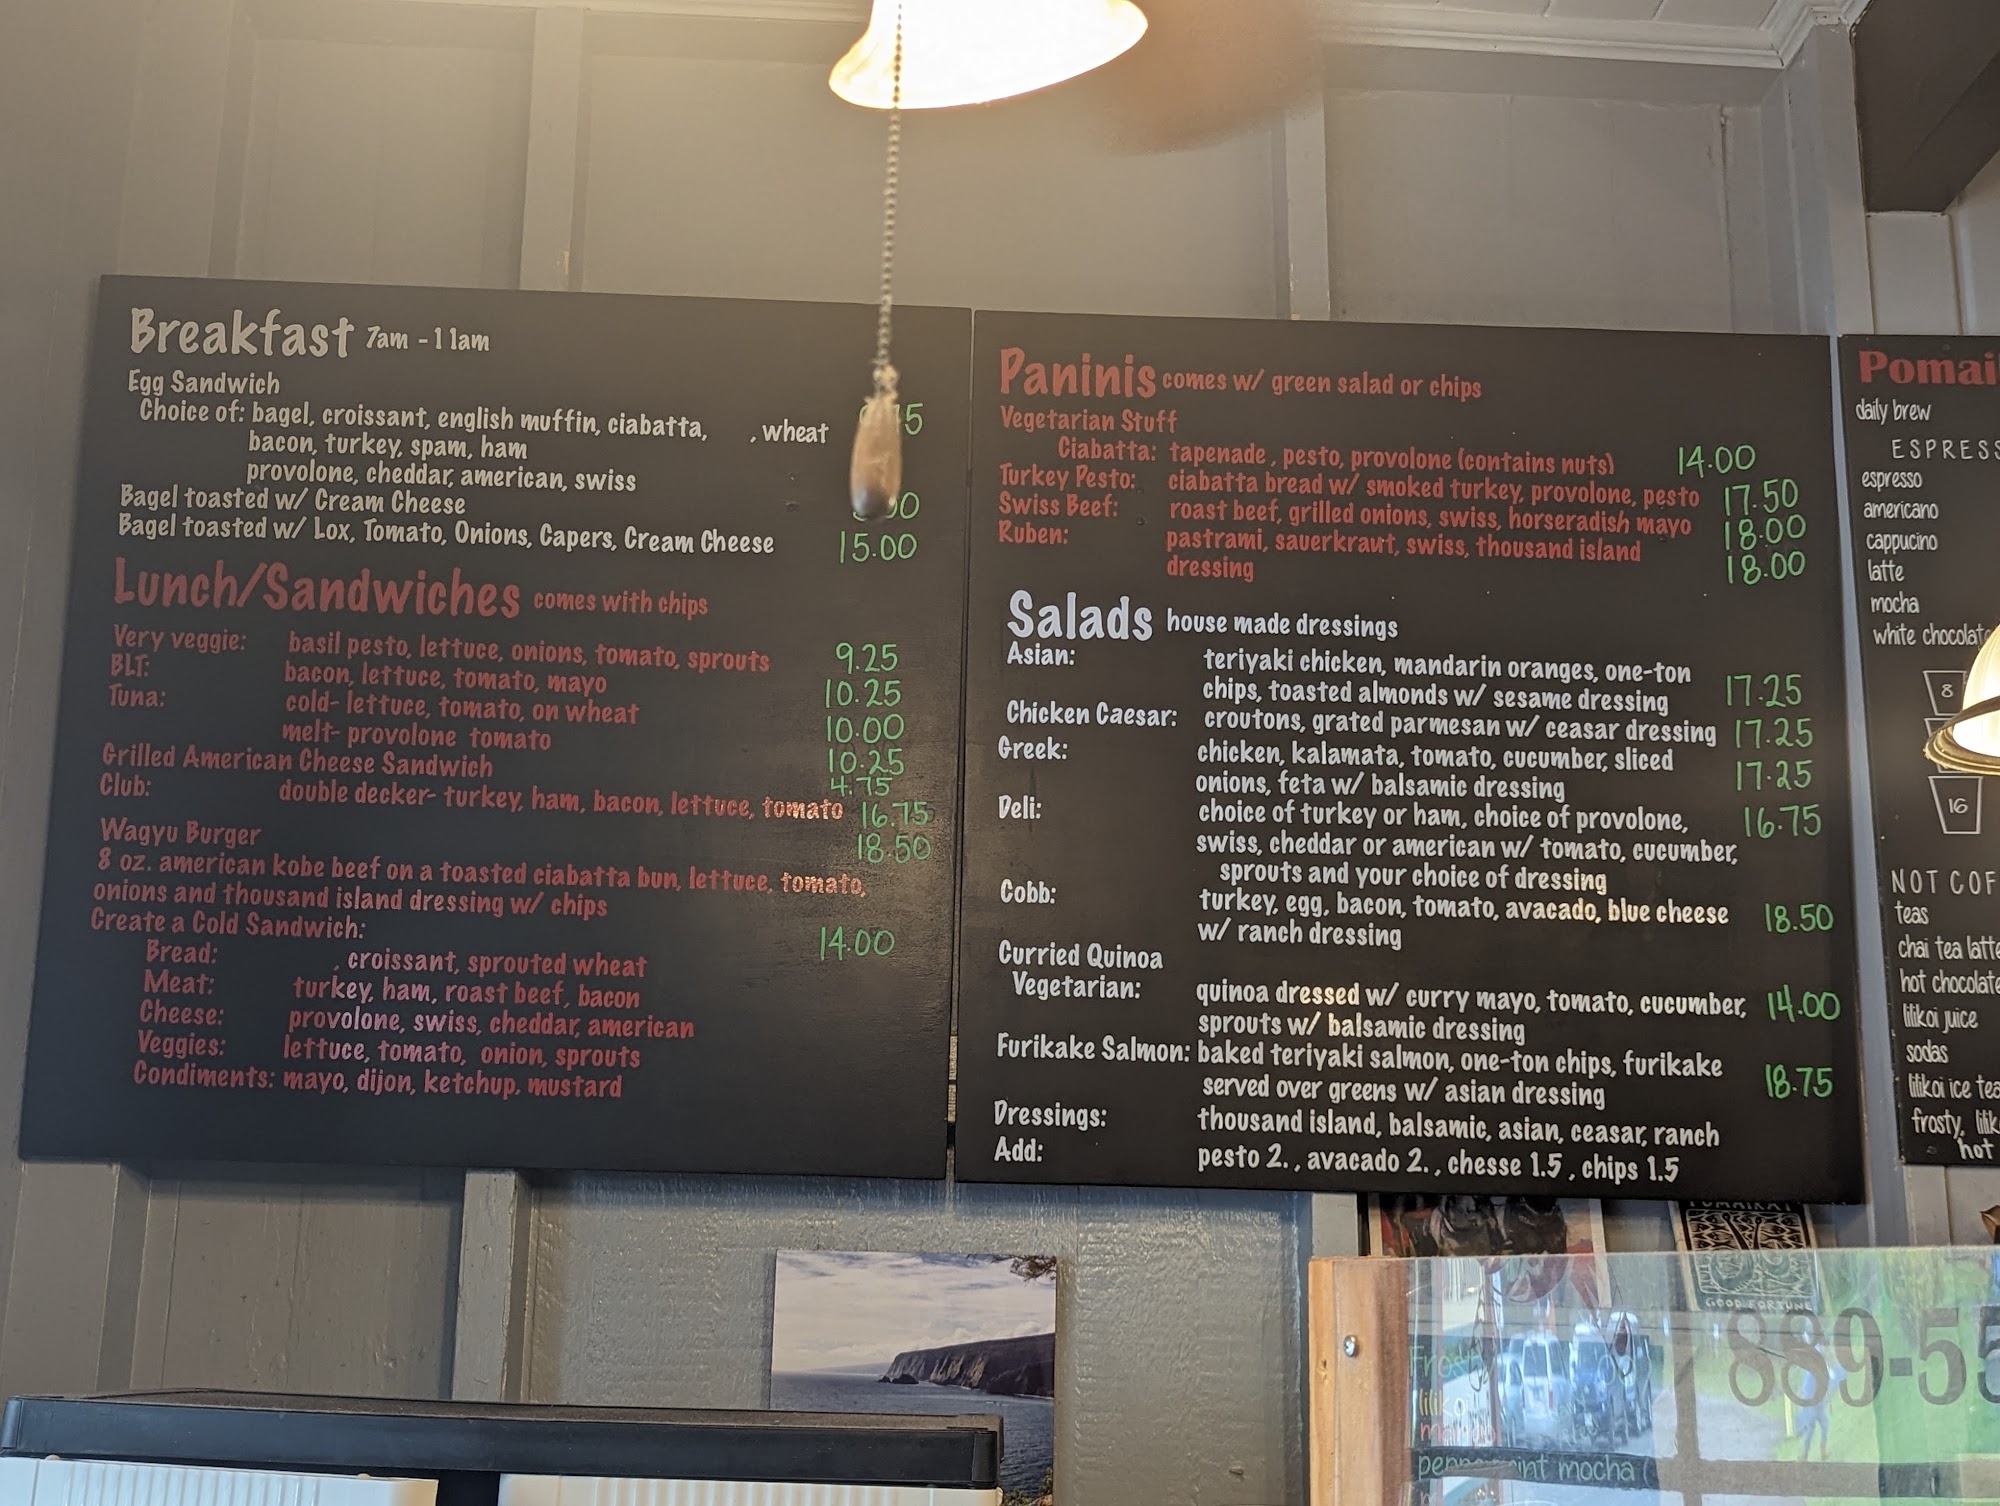 Breakfast 7am - 11am
Egg Sandwich
Choice of: bagel, croissant, english muffin, ciabatta, , wheat
bacon, turkey, spam, ham
provolone, cheddar, american, swiss
Bagel toasted w/ Cream Cheese
Bagel toasted w/ Lox, Tomato, Onions, Capers, Cream Cheese 15.00
Lunch/Sandwiches comes with chips
Very veggie: basil pesto, lettuce, onions, tomato, sprouts 9.25
BLT: bacon, lettuce, tomato, mayo 10.25
Tuna: cold- lettuce, tomato, on wheat 10.00
melt- provolone tomato 10.25
Grilled American Cheese Sandwich 4.75
Club: double decker- turkey, ham, bacon, lettuce, tomato 16.75
Wagyu Burger 18.50
8 oz. american kobe beef on a toasted ciabatta bun, lettuce, tomato,
onions and thousand island dressing w/ chips
Create a Cold Sandwich: 14.00
Bread: , croissant, sprouted wheat
Meat: turkey, ham, roast beef, bacon
Cheese: provolone, swiss, cheddar, american
Veggies: lettuce, tomato, onion, sprouts
Condiments: mayo, dijon, ketchup, mustard
Paninis comes w/ green salad or chips
Vegetarian Stuff
Ciabatta: tapenade , pesto, provolone (contains nuts) 14.00
Turkey Pesto: ciabatta bread w/ smoked turkey, provolone, pesto 17.50
Swiss Beef: roast beef, grilled onions, swiss, horseradish mayo 18.00
Ruben: pastrami, sauerkraut, swiss, thousand island 18.00
dressing
Salads house made dressings
Asian: teriyaki chicken, mandarin oranges, one-ton
chips, toasted almonds w/ sesame dressing 17.25
Chicken Caesar: croutons, grated parmesan w/ ceasar dressing 17.25
Greek: chicken, kalamata, tomato, cucumber, sliced
onions, feta w/ balsamic dressing 17.25
Deli: choice of turkey or ham, choice of provolone, 16.75
swiss, cheddar or american w/ tomato, cucumber,
sprouts and your choice of dressing
Cobb: turkey, egg, bacon, tomato, avacado, blue cheese 18.50
w/ ranch dressing
Curried Quinoa
Vegetarian: quinoa dressed w/ curry mayo, tomato, cucumber, 14.00
sprouts w/ balsamic dressing
Furikake Salmon: baked teriyaki salmon, one-ton chips, furikake 18.75
served over greens w/ asian dressing
Dressings: thousand island, balsamic, asian, ceasar, ranch
Add: pesto 2. , avacado 2. , chesse 1.5 , chips 1.5
daily brew
espresso
americano
cappucino
latte
mocha
white
8
16
NOT
teas
chai tea
hot
lilikoi juice
sodas
lilikoi ice
frosty,
hot
GOOD FORTUNE
889-55
mocha